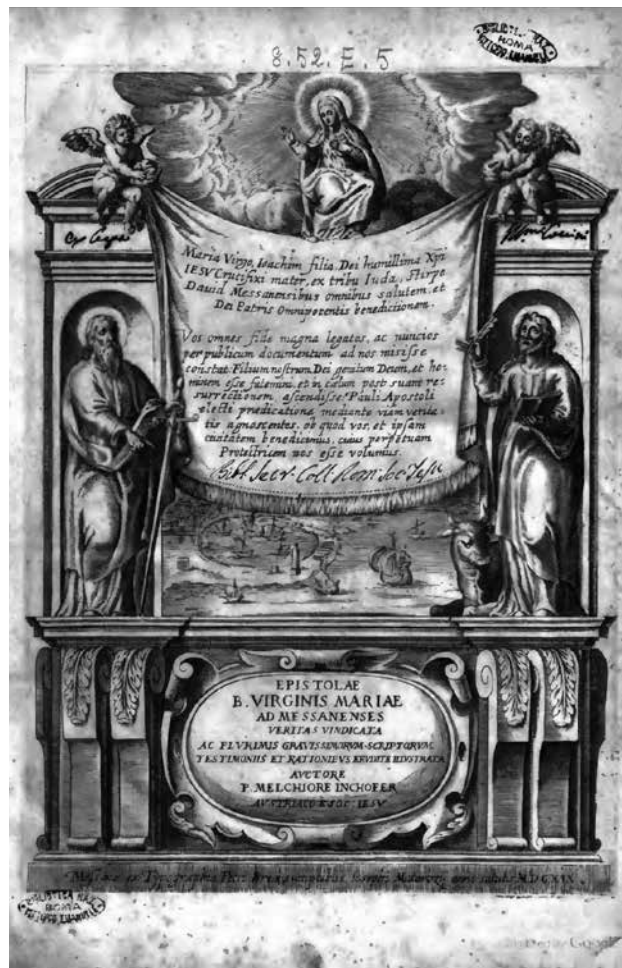 8.52.E.5
BIBLIOTECA NAZ
ROMA
Maria Virgo, Ioachim filia, Dei humillima Xpi
IESV Crucifixi mater, ex tribu Iuda, Stirpe
David Messanensibus omnibus salutem, et
Dei Patris Omnipotentis benedictionem.
Vos omnes fide magna legatos, ac nuncios
per publicum documentum ad nos misisse
constat. Filium nostrum Dei genitum Deum, et ho-
minem esse fatemini, et in cælum post suam re-
surrectionem ascendisse: Pauli Apostoli
electi prædicatione mediante viam verita-
tis agnoscentes, ob quod vos, et ipsam
civitatem benedicimus, cuius perpetuam
Protectricem nos esse volumus.
Bibl. Secr. Coll. Rom. Soc. Jesu
EPISTOLAE
B. VIRGINIS MARIAE
AD MESSANENSES
VERITAS VINDICATA
AC PLVRIMIS GRAVISSIMORVM SCRIPTORVM
TESTIMONIIS ET RATIONIBVS ERVDITE ILLVSTRATA
AVCTORE
P. MELCHIORE INCHOFER
AVSTRIACO E SOC. IESV
ex Typographia Petri
ROMA
Google